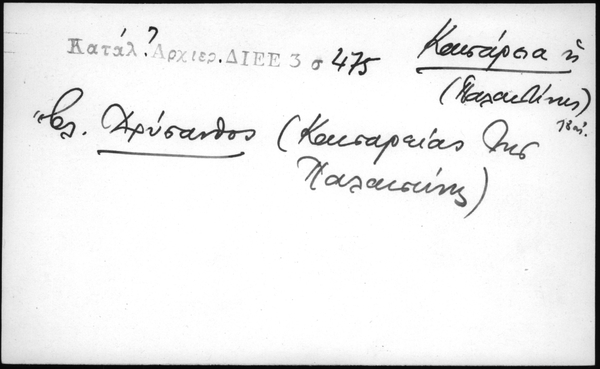 Κατάλ.? Αρχιερ. ΔΙΕΕ 3 σ 475
Καισάρεια ἡ
(Παλαιστίνης)
18 αἰ.
Βλ. Χρύσανθος (Καισαρείας τῆς
Παλαιστίνης)